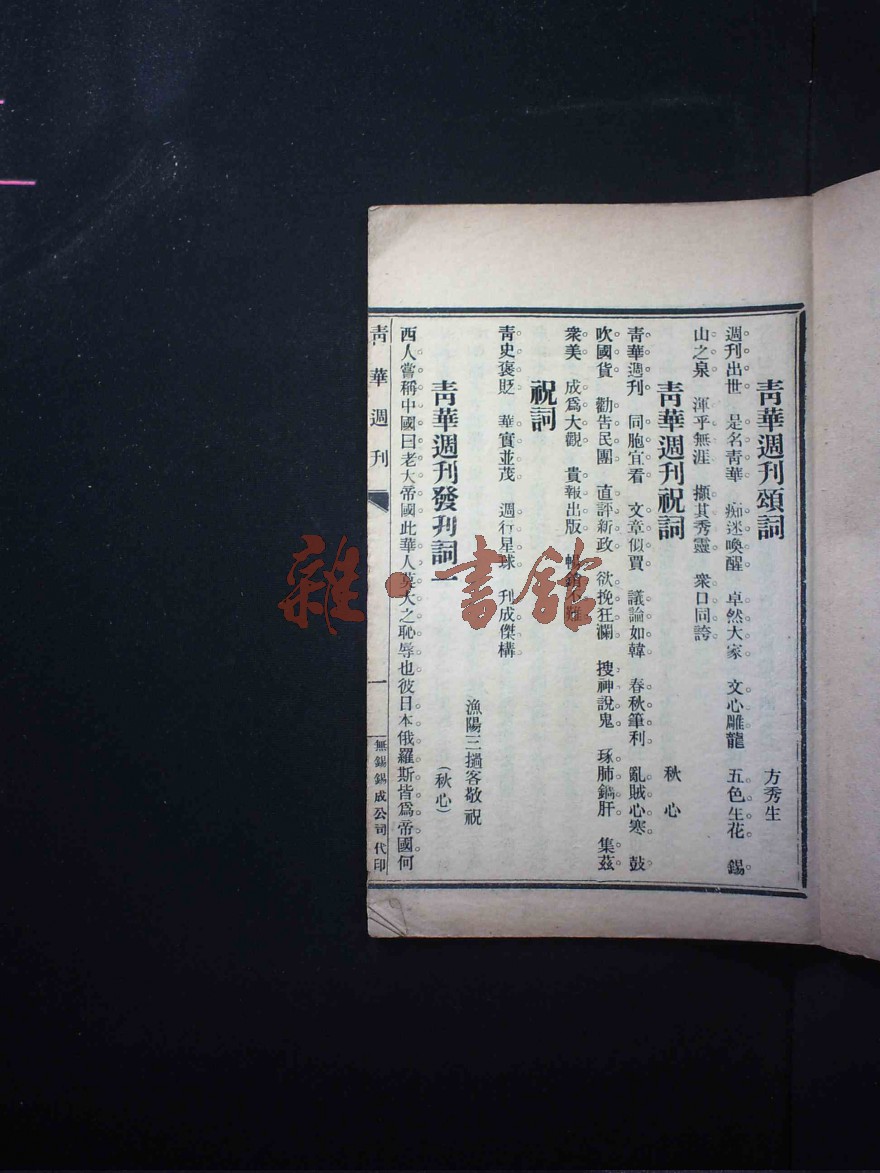 青華週刊頌詞
方秀生
週刊出世 是名青華 痴迷喚醒 卓然大家 文心雕龍 五色生花 錫
山之泉 渾乎無涯 擷其秀靈 衆口同誇
青華週刊祝詞
秋心
青華週刊 同胞宜看 文章似賈 議論如韓 春秋筆利 亂賊心寒 鼓
吹國貨 勸告民團 直評新政 欲挽狂瀾 搜神說鬼 琢肺鎸肝 集茲
衆美 成爲大觀 貴報出版 暢銷不難
祝詞
青史褒貶 華實並茂 週行星球 刊成傑構
漁陽三撾客敬祝
青華週刊發刊詞一
(秋心)
西人嘗稱中國曰老大帝國此華人莫大之恥辱也彼日本俄羅斯皆爲帝國何
青華週刊
一
無錫錫成公司代印
雜·書館